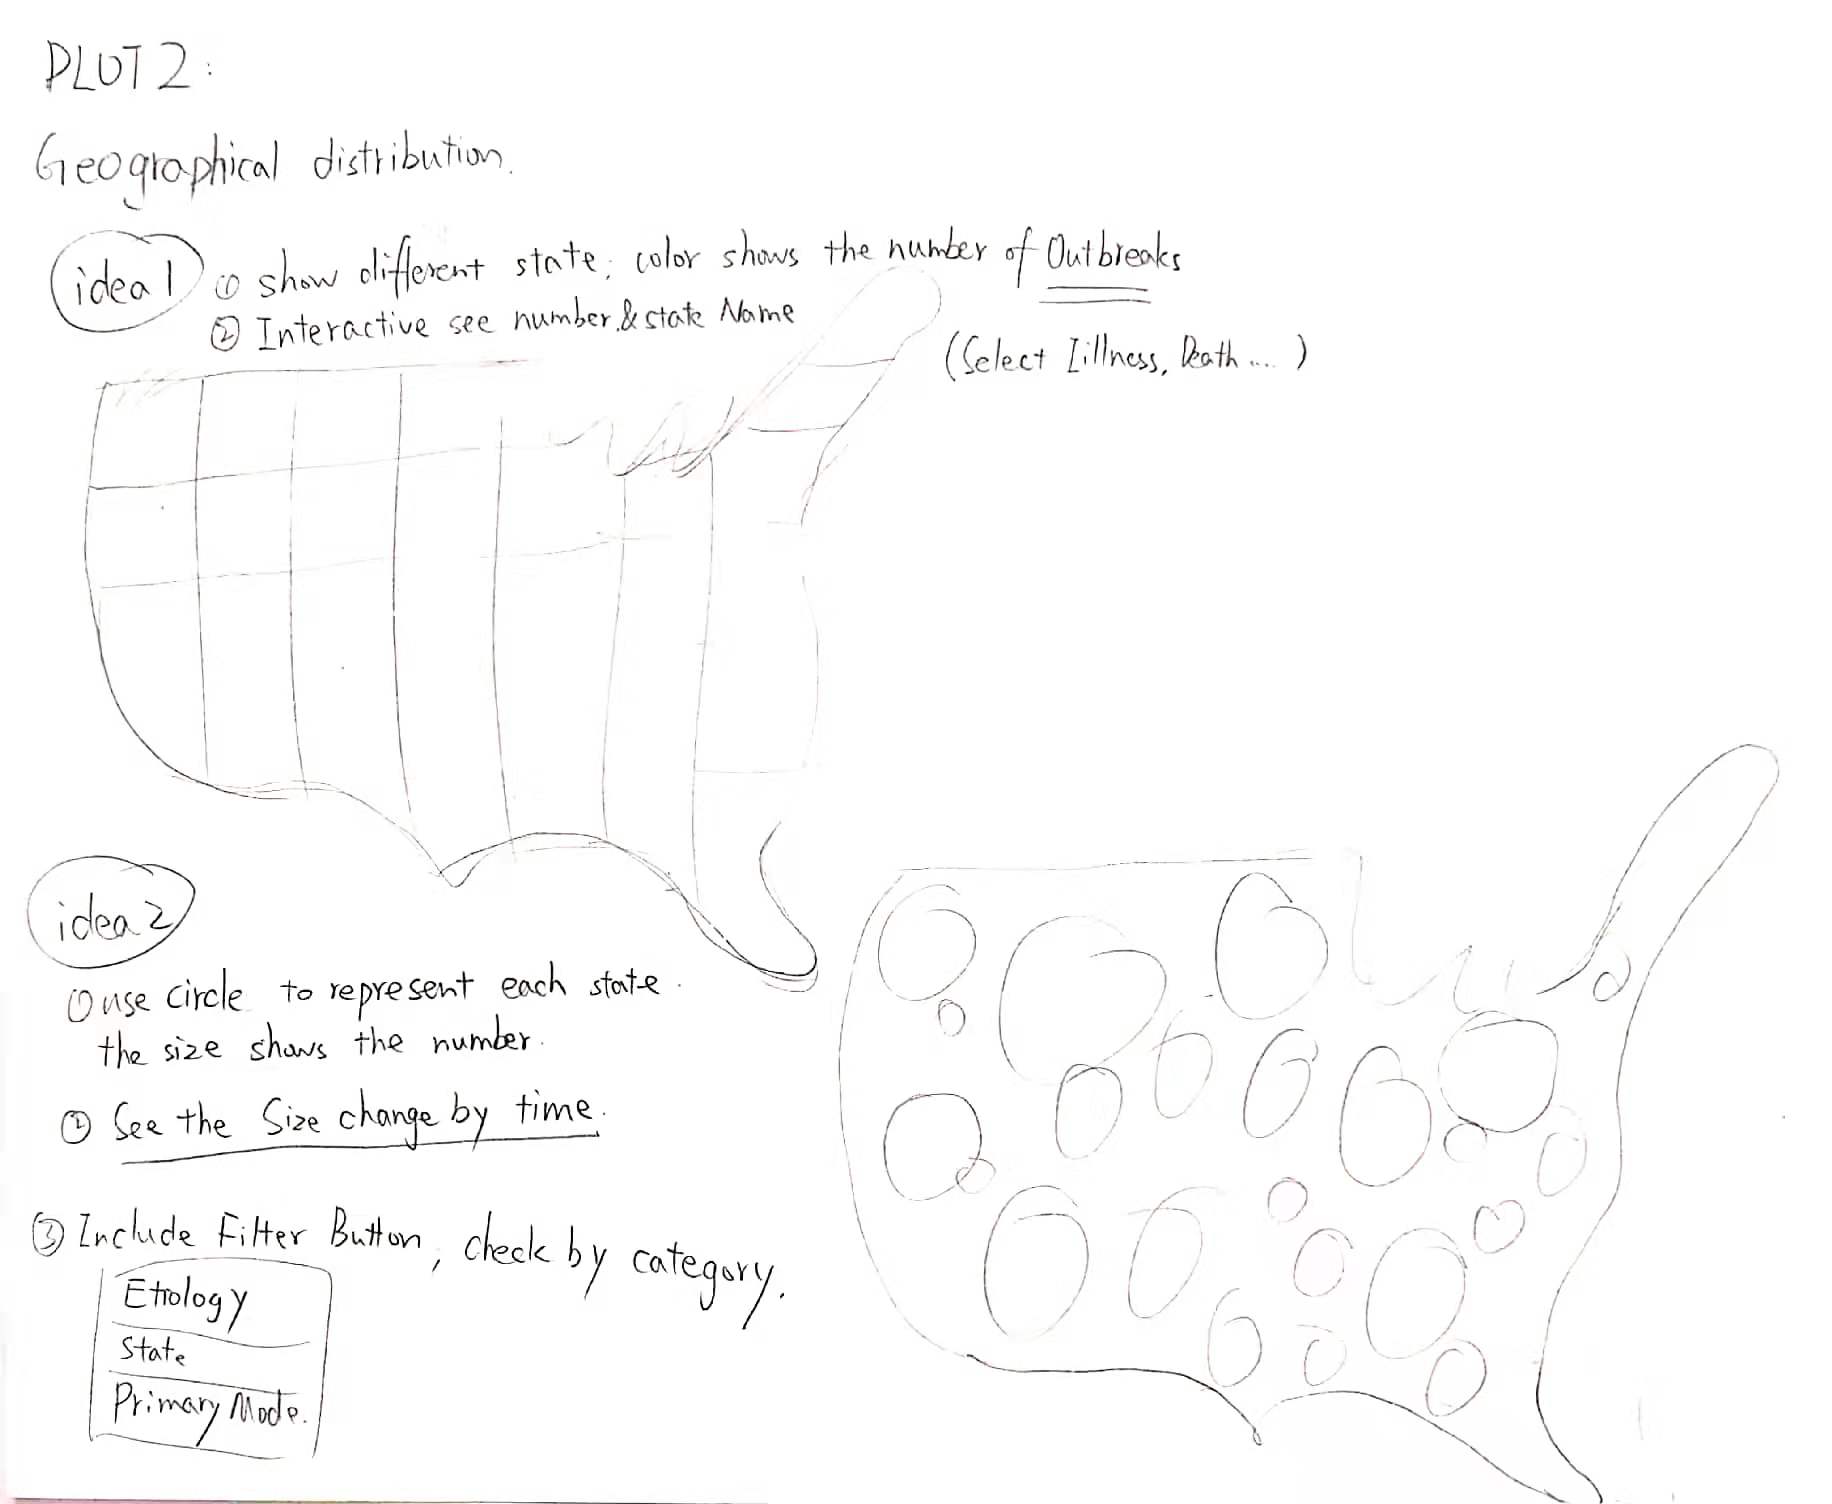 PLOT 2:
Geographical distribution.
idea 1 ① show different state; color shows the number of Outbreaks
② Interactive see number & state Name
(Select Iillness, Death .... )
idea 2
① use circle to represent each state.
the size shows the number.
② See the Size change by time.
③ Include Filter Button, check by category.
Etiology
State
Primary Mode.